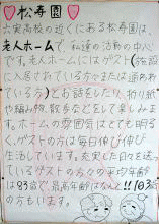 ♡松寿園♡
六実高校の近くにある松寿園は、
老人ホームで、私達の活動の中心
です。老人ホームにはゲスト(施設
に入居されている方々または通われ
ている方)とお話をしたり、折り紙
や編み物、散歩などをして楽しみま
す。ホームの雰囲気はとても明る
く、ゲストの方は毎日伸び伸び
生活しています。充実した日々を送っ
ているゲストの方々の平均年齢
は83歳で、最高年齢はなんと!!103歳
の方もいます。